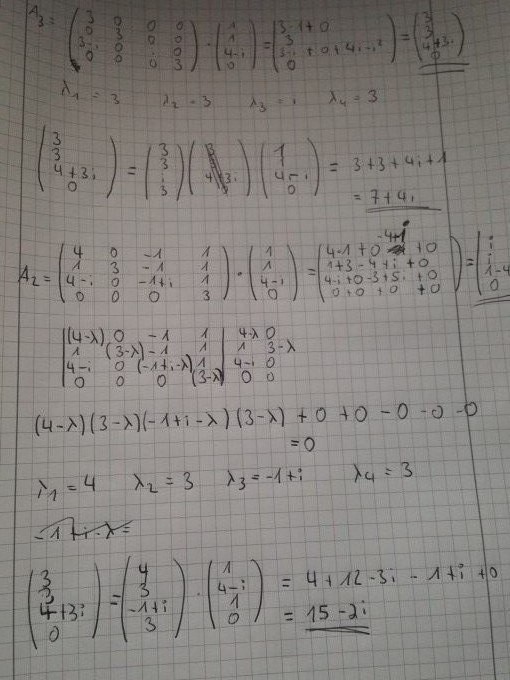 A₃ = (3 0 0 0; 0 3 0 0; 3-i 0 0 0; 0 0 0 3) · (1; 1; 4-i; 0) = (3-1+0; 3; 3-i+0+4i-i²; 0) = (3; 3; 4+3i; 0)
λ₁ = 3 λ₂ = 3 λ₃ = i λ₄ = 3
(3; 3; 4+3i; 0) = (3; 3; i; 3) (1; 1; 4-i; 0) = 3+3+4i+1
= 7+4i
A₂ = (4 0 -1 1; 1 3 -1 1; 4-i 0 -1+i 1; 0 0 0 3) · (1; 1; 4-i; 0) = (4-1+0 -4+i +0; 1+3-4+i+0; 4-i+0-3+5i+0; 0+0+0+0) = (i; i; 1-4; 0)
|(4-λ) 0 -1 1| 4-λ 0
|1 (3-λ) -1 1| 1 3-λ
|4-i 0 (-1+i-λ) 1| 4-i 0
|0 0 0 (3-λ)| 0 0
(4-λ)(3-λ)(-1+i-λ)(3-λ) +0 +0 -0 -0 -0
=0
λ₁ = 4 λ₂ = 3 λ₃ = -1+i λ₄ = 3
-1+i-λ=
(3; 3; 4+3i; 0) = (4; 3; -1+i; 3) · (1; 4-i; 1; 0) = 4+12-3i-1+i+0
= 15-2i